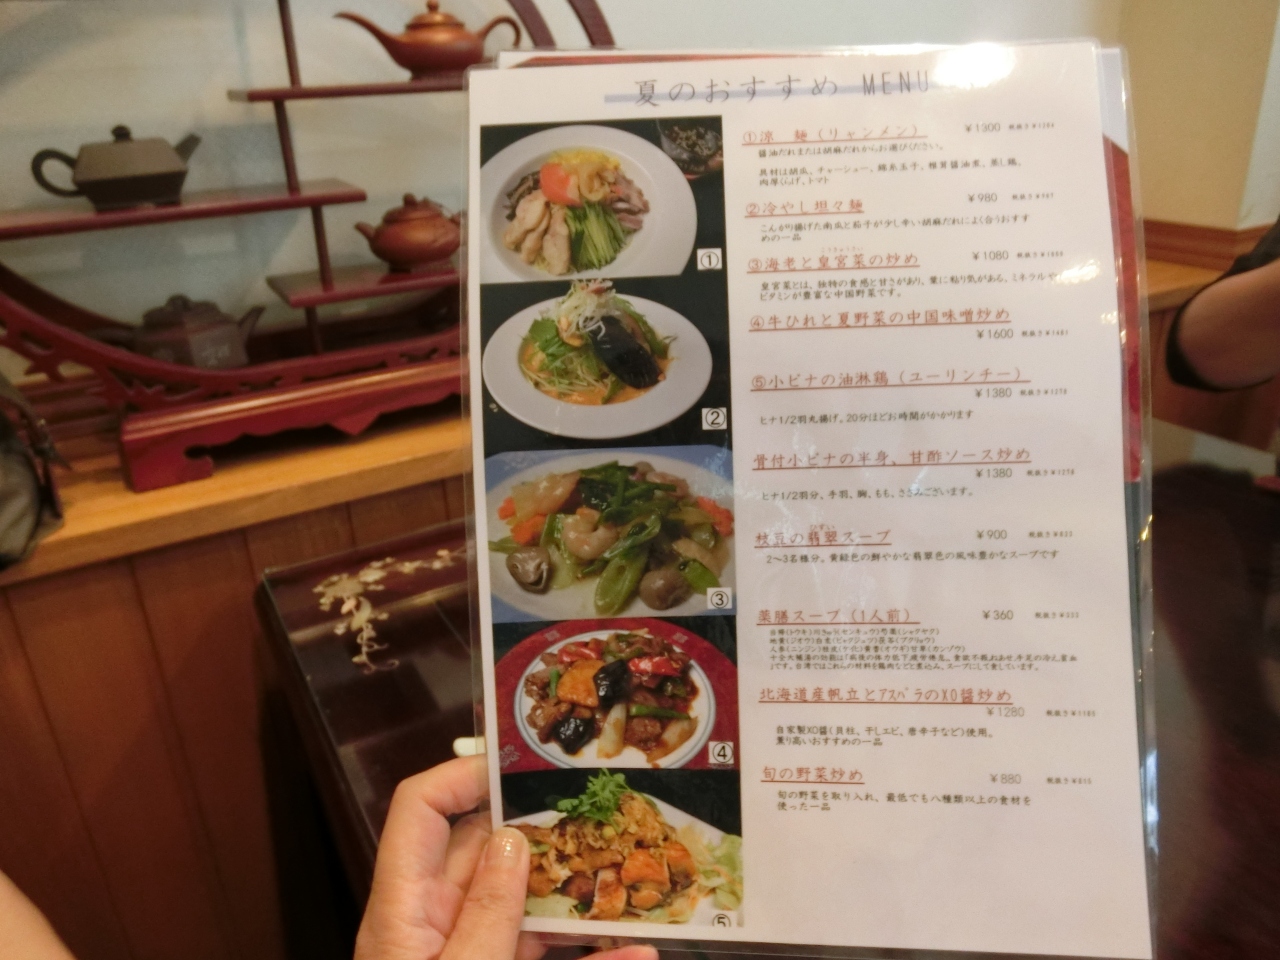 夏のおすすめ MENU
①涼 麺(リャンメン) ¥1300
醤油だれまたは胡麻だれからお選びください。
具材は胡瓜、チャーシュー、錦糸玉子、椎茸醤油煮、蒸し鶏、
肉厚くらげ、トマト
②冷やし坦々麺 ¥980
こんがり揚げた南瓜と茄子が少し辛い胡麻だれによく合うおすす
めの一品
③海老と皇宮菜の炒め ¥1080
皇宮菜とは、独特の食感と甘さがあり、葉に粘り気がある、ミネラルや
ビタミンが豊富な中国野菜です。
④牛ひれと夏野菜の中国味噌炒め
¥1600
⑤小ビナの油淋鶏(ユーリンチー)
¥1380 税抜き¥1278
ヒナ1/2羽丸揚げ。20分ほどお時間がかかります
骨付小ビナの半身、甘酢ソース炒め
¥1380 税抜き¥1278
ヒナ1/2羽分、手羽、胸、もも、ささみございます。
枝豆の翡翠スープ ¥900 税抜き¥833
2~3名様分。黄緑色の鮮やかな翡翠色の風味豊かなスープです
薬膳スープ(1人前) ¥360 税抜き¥333
北海道産帆立とアスパラのXO醤炒め
¥1280 税抜き¥1185
自家製XO醤(貝柱、干しエビ、唐辛子など)使用。
薫り高いおすすめの一品
旬の野菜炒め ¥880 税抜き¥815
旬の野菜を取り入れ、最低でも八種類以上の食材を
使った一品
①
②
③
④
⑤